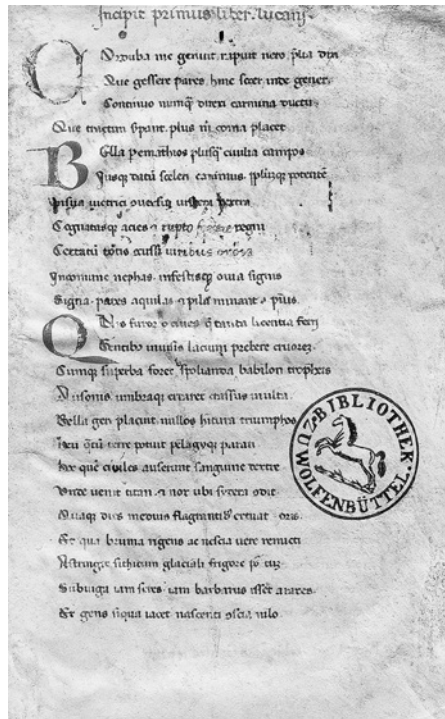 Incipit primus liber lucani
Corduba me genuit rapuit nero, plia dixi
Que gessere pares, hinc socer inde gener
Continuo numq̃ direxi carmina ductu
Que tractim sipant. plus m̃ coma placet
Bella p emathios plusq̃ civilia campos
Iusq; datũ sceleri canimus, pplumq; potentẽ
In sua victrici viscera dextra
Cognatasq; acies ⁊ rupto federe regni
Certatũ totis viribus orbis
In comune nephas. infestisq; obvia signis
Signa. pares aquilas ⁊ pila minantia pilis
Quis furor o cives q̃ tanta licentia ferri
Gentib; invisis laciuȝ prebere cruorẽ
Cumq; superba foret spolianda babilon tropheis
Ausoniis umbraq; erraret crassus inulta
Bella geri placuit nullos habitura triumphos
Heu q̃tũ terre potuit pelagiq; parari
Hac quẽ civiles auserunt sanguine dextre
Unde venit titan ⁊ nox ubi sydera ↄdit
Quaq; dies medius flagrantib; estuat oris
Et qua bruma rigens ac nescia vere remicti
Astringit sithicum glaciali frigore
Sub iuga iam seres iam barbarus isset araxes
Et gens siqua iacet nascenti ↄscia nilo
BIBLIOTHEK
ZU WOLFENBÜTTEL.